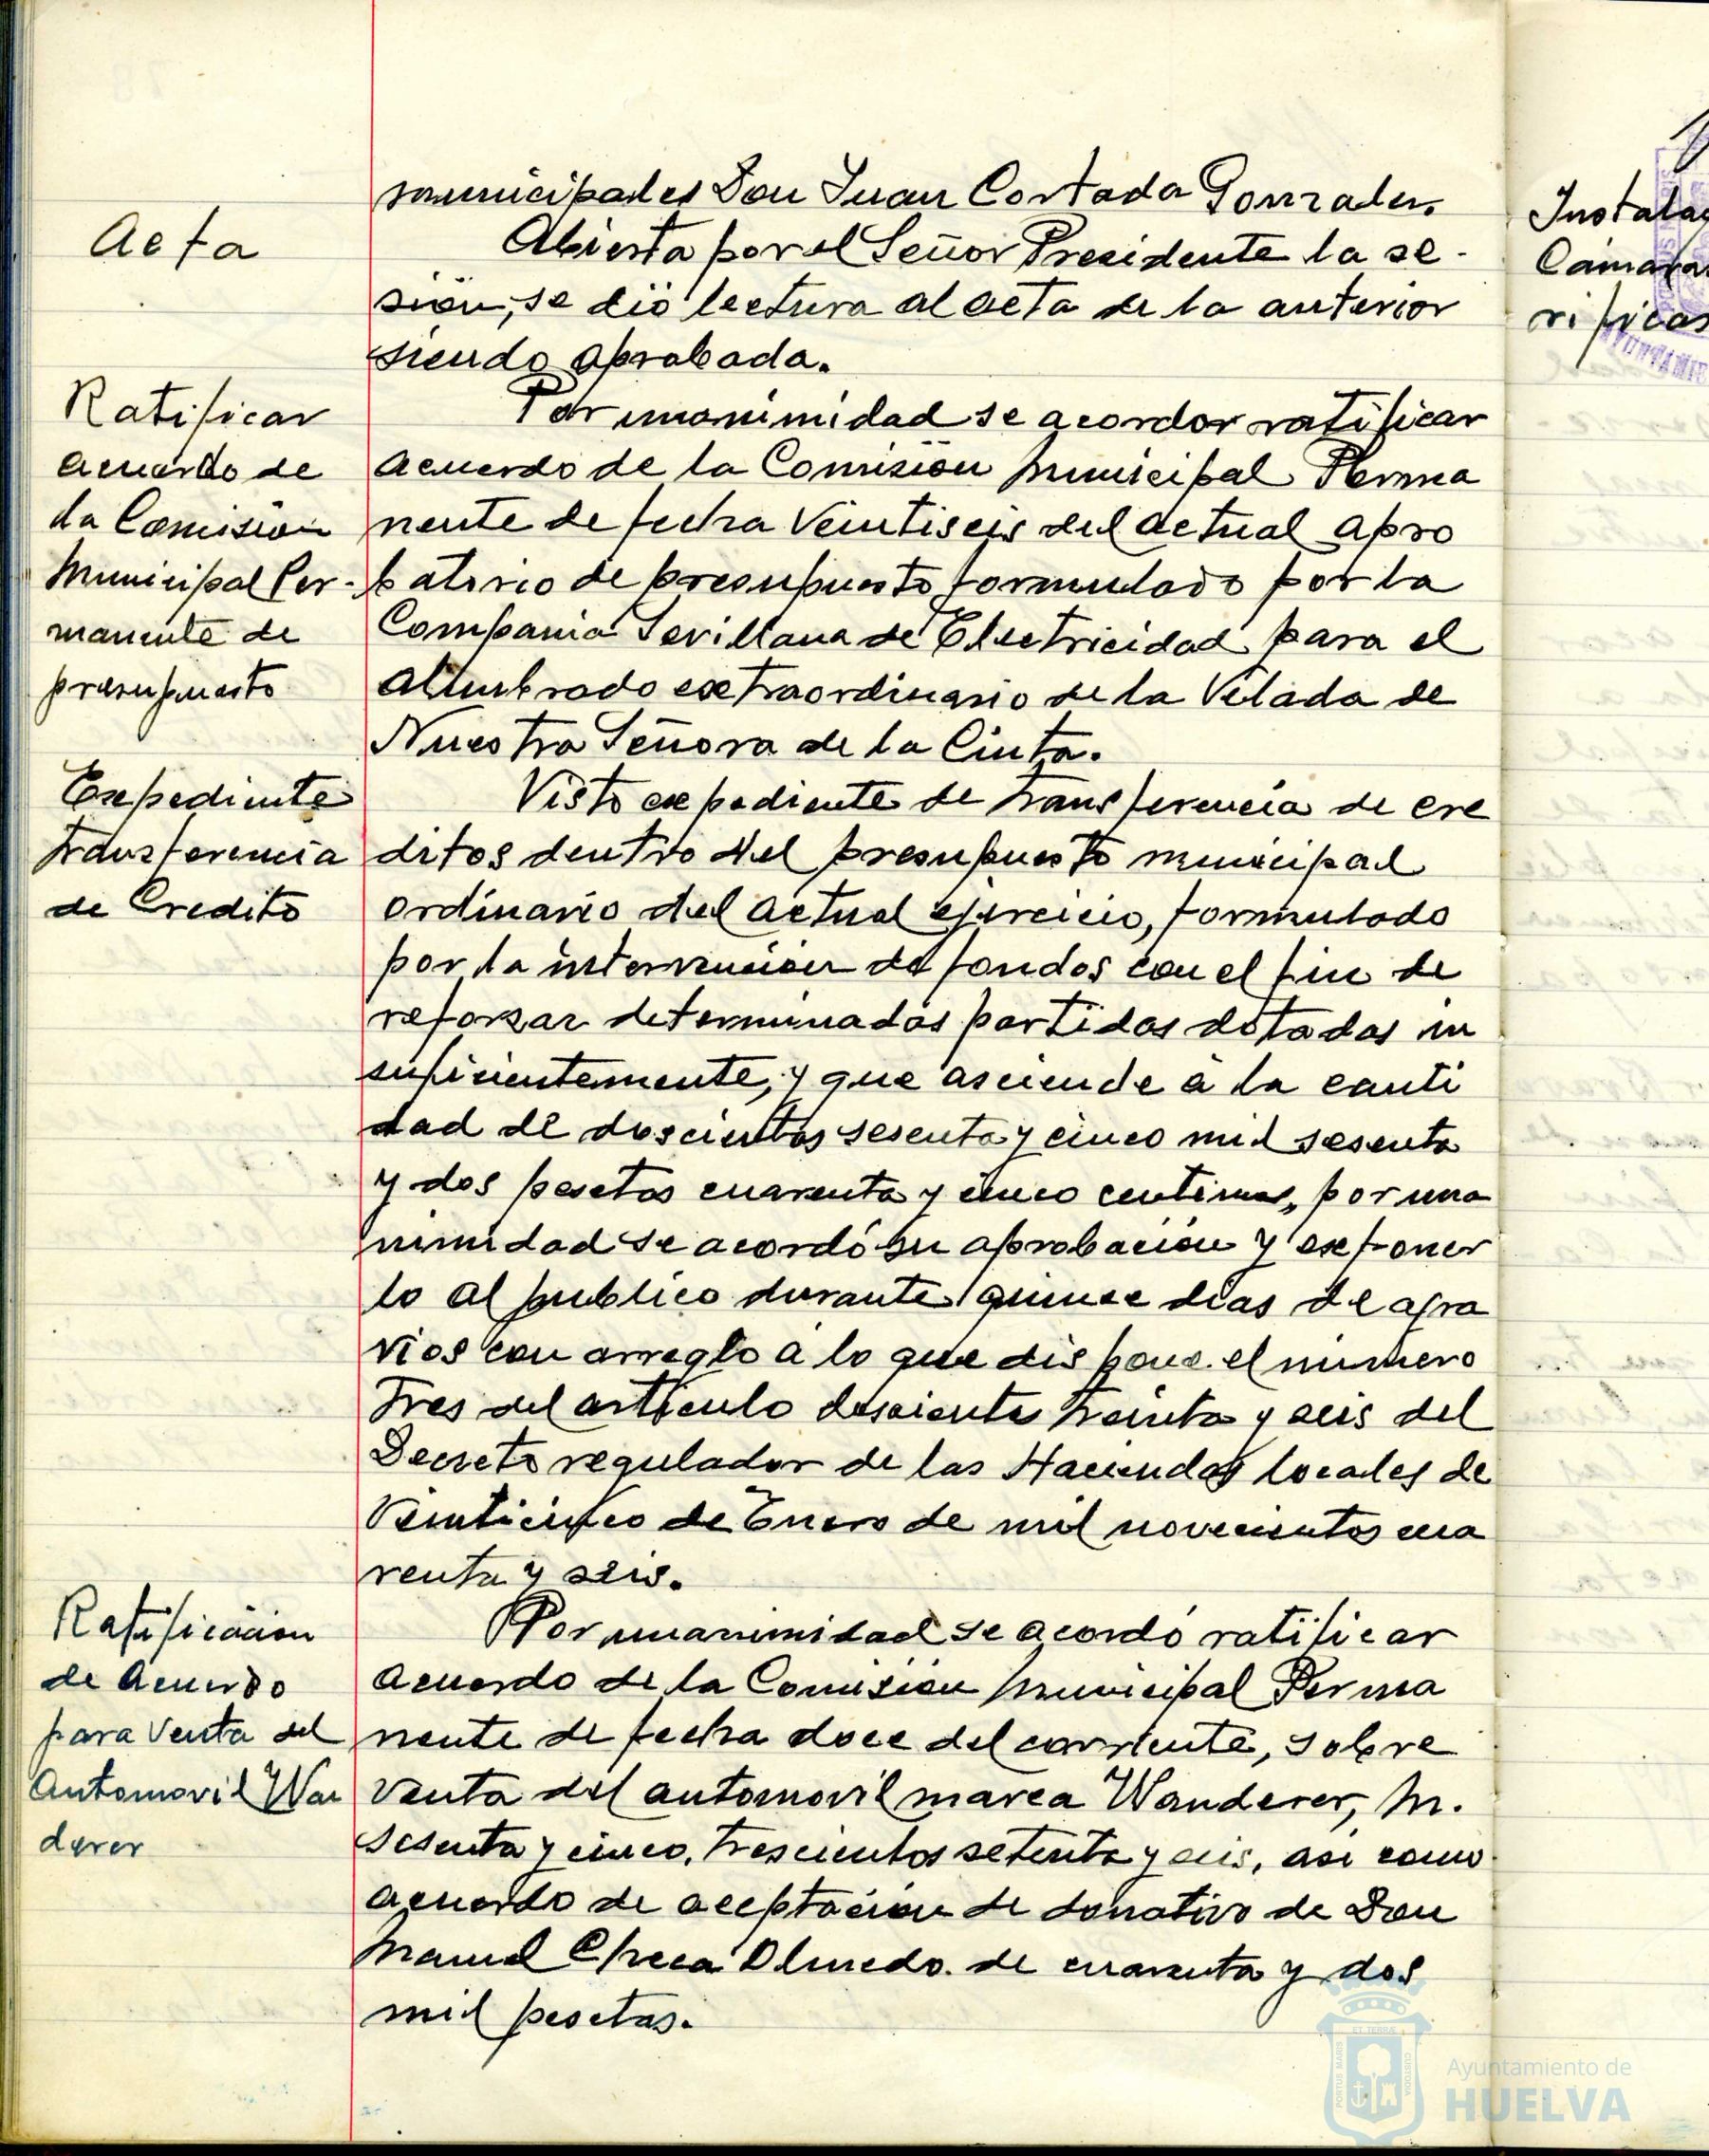 municipales Don Juan Cortada Gonzalez.
Acta
Abierta por el Señor Presidente la se-
sión, se dió lectura al acta de la anterior
siendo aprobada.
Ratificar
acuerdo de
la Comision
Municipal Per-
manente de
presupuesto
Por unanimidad se acordor ratificar
acuerdo de la Comision Municipal Perma
nente de fecha veintiseis del actual apro
batorio de presupuesto formulado por la
Compania Sevillana de Electricidad para el
alumbrado extraordinario de la Velada de
Nuestra Señora de la Cinta.
Expediente
transferencia
de Credito
Visto expediente de transferencia de cre
ditos dentro del presupuesto municipal
ordinario del actual ejercicio, formulado
por la intervencion de fondos con el fin de
reforzar determinadas partidas dotadas in
suficientemente, y que asciende a la canti
dad de doscientas sesenta y cinco mil sesenta
y dos pesetas cuarenta y cinco centimos, por una
nimidad se acordó su aprobacion y exponer
lo al publico durante quince dias de agra
vios con arreglo a lo que dispone el numero
tres del articulo doscientos treinta y seis del
Decreto regulador de las Haciendas locales de
Veinticinco de Enero de mil novecientos cua
renta y seis.
Ratificacion
de acuerdo
para Venta del
Automovil Wan
derer
Por unanimidad se acordó ratificar
acuerdo de la Comision Municipal Perma
nente de fecha doce del corriente, sobre
venta del automovil marca Wanderer, M.
sesenta y cinco, trescientos setenta y seis, asi como
acuerdo de aceptacion de donativo de Don
Manuel Checa Olmedo de cuarenta y dos
mil pesetas.
Instalac
Cámara
rificas
Ayuntamiento de
HUELVA